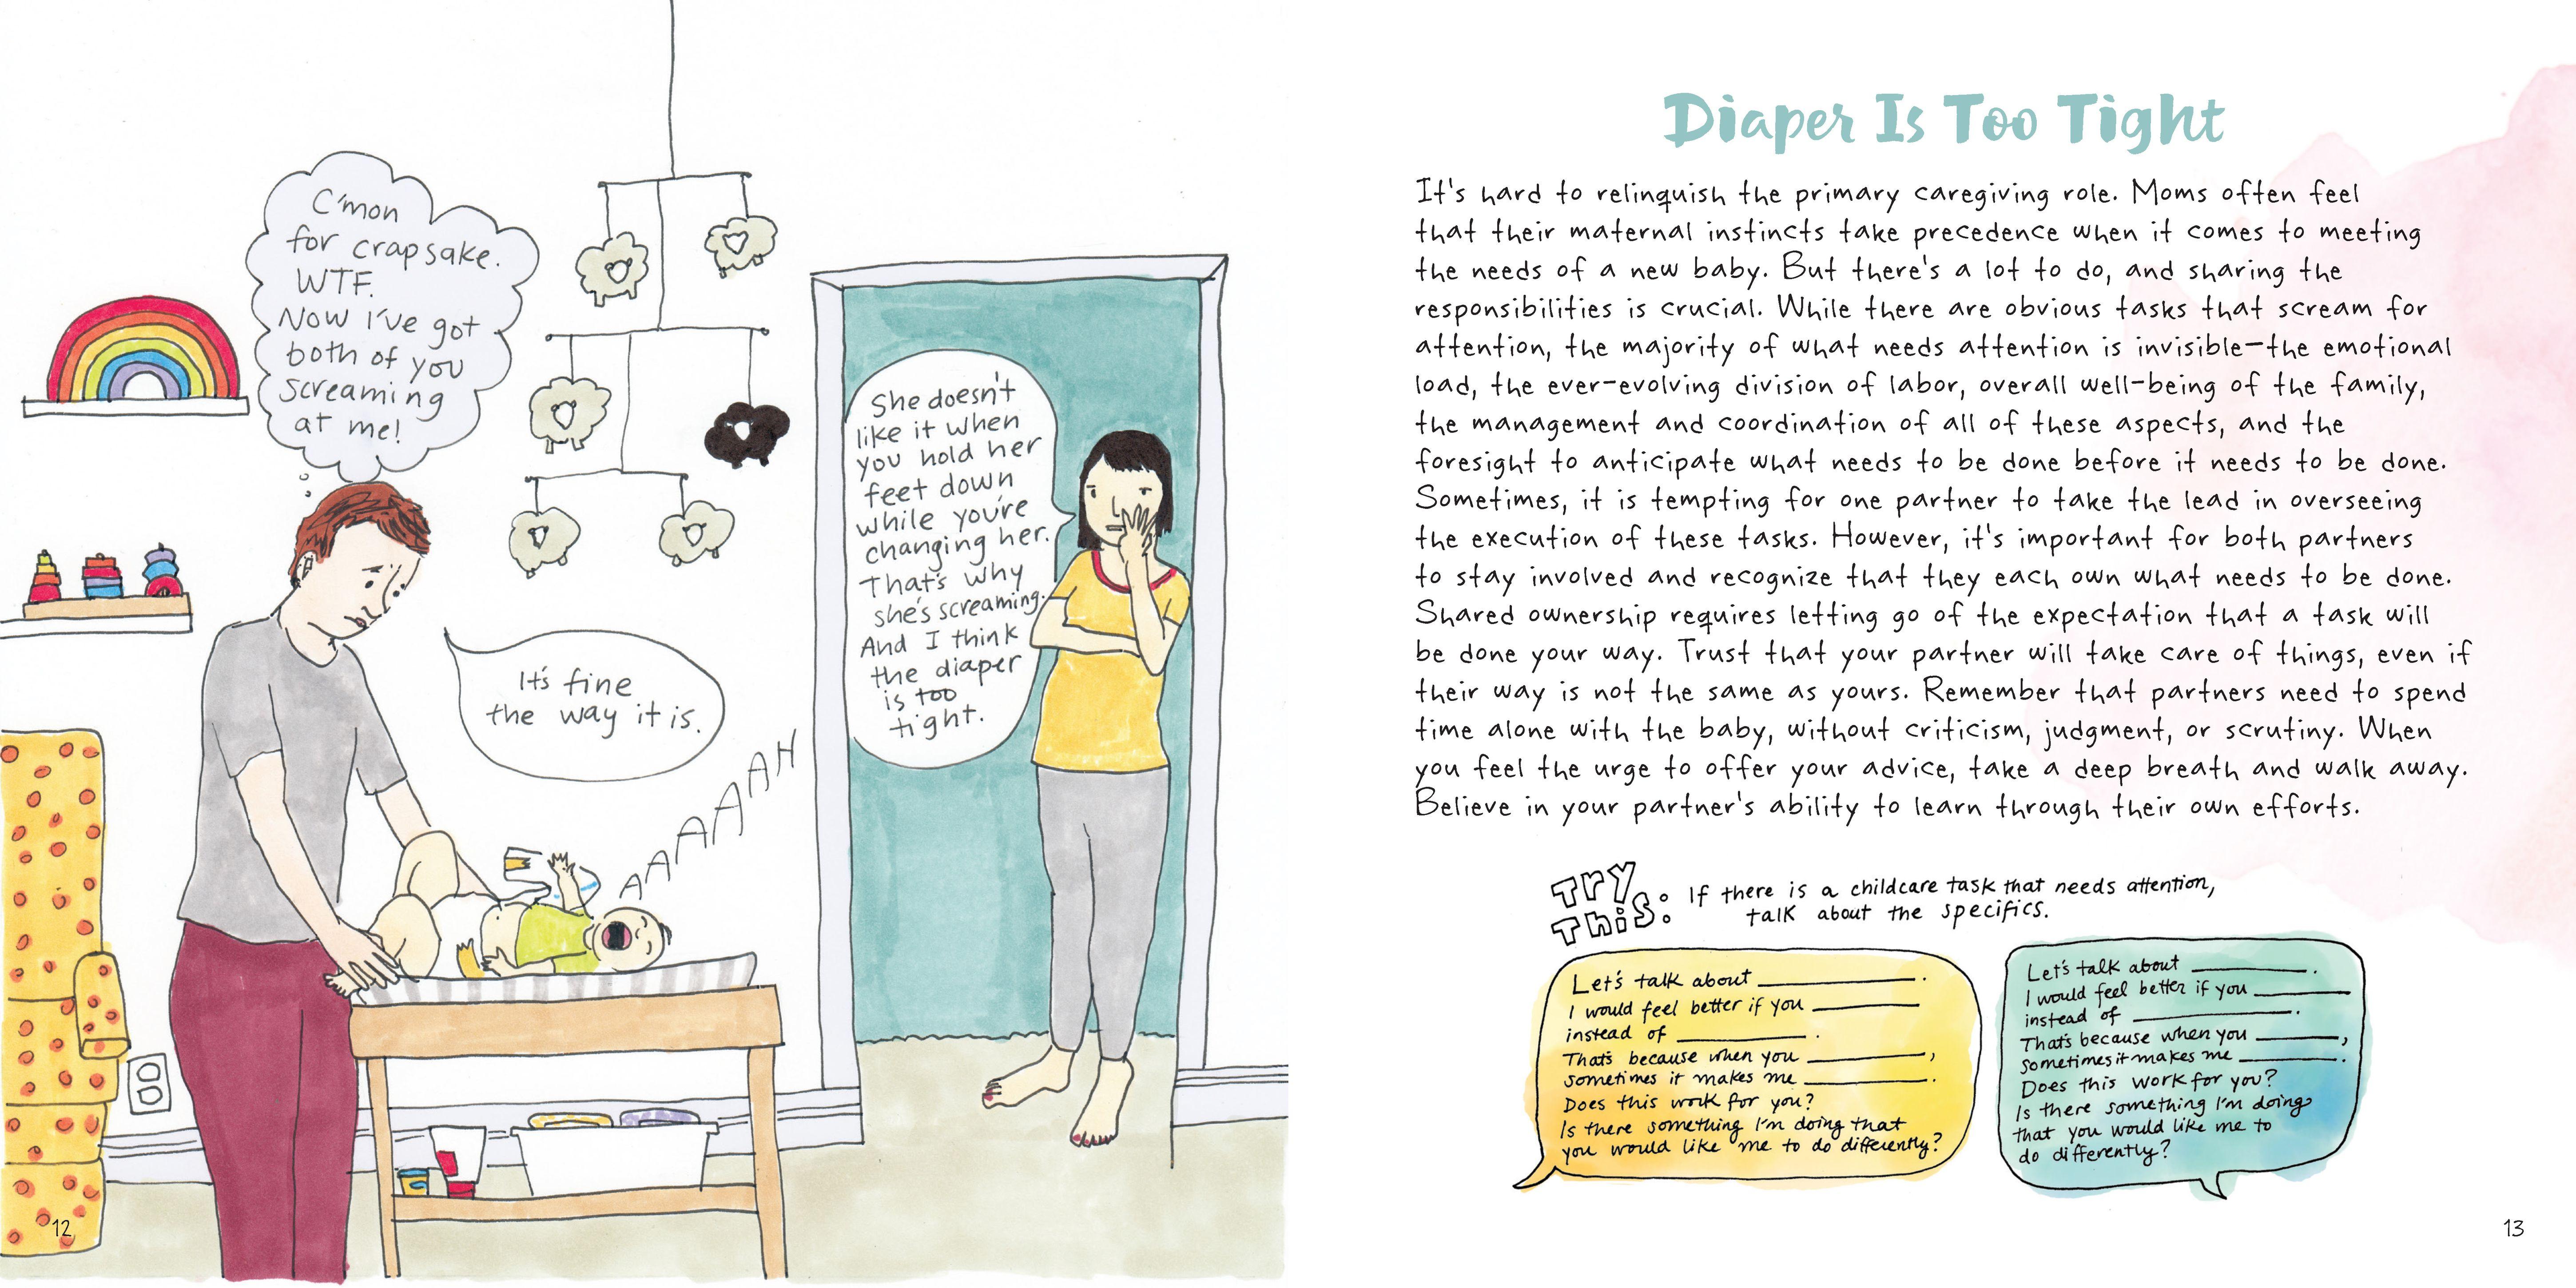 C'mon
for crapsake.
WTF.
Now I've got
both of you
screaming
at me!
She doesn't
like it when
you hold her
feet down
while you're
changing her.
That's why
she's screaming.
And I think
the diaper
is too
tight.
It's fine
the way it is.
AAAAAAH
12
Diaper Is Too Tight
It's hard to relinquish the primary caregiving role. Moms often feel
that their maternal instincts take precedence when it comes to meeting
the needs of a new baby. But there's a lot to do, and sharing the
responsibilities is crucial. While there are obvious tasks that scream for
attention, the majority of what needs attention is invisible—the emotional
load, the ever-evolving division of labor, overall well-being of the family,
the management and coordination of all of these aspects, and the
foresight to anticipate what needs to be done before it needs to be done.
Sometimes, it is tempting for one partner to take the lead in overseeing
the execution of these tasks. However, it's important for both partners
to stay involved and recognize that they each own what needs to be done.
Shared ownership requires letting go of the expectation that a task will
be done your way. Trust that your partner will take care of things, even if
their way is not the same as yours. Remember that partners need to spend
time alone with the baby, without criticism, judgment, or scrutiny. When
you feel the urge to offer your advice, take a deep breath and walk away.
Believe in your partner's ability to learn through their own efforts.
Try
This:
If there is a childcare task that needs attention,
talk about the specifics.
Let's talk about ____________.
I would feel better if you ________
instead of __________.
That's because when you _________,
sometimes it makes me __________.
Does this work for you?
Is there something I'm doing that
you would like me to do differently?
Let's talk about _________.
I would feel better if you _______
instead of ____________.
That's because when you ______,
sometimes it makes me _______.
Does this work for you?
Is there something I'm doing
that you would like me to
do differently?
13